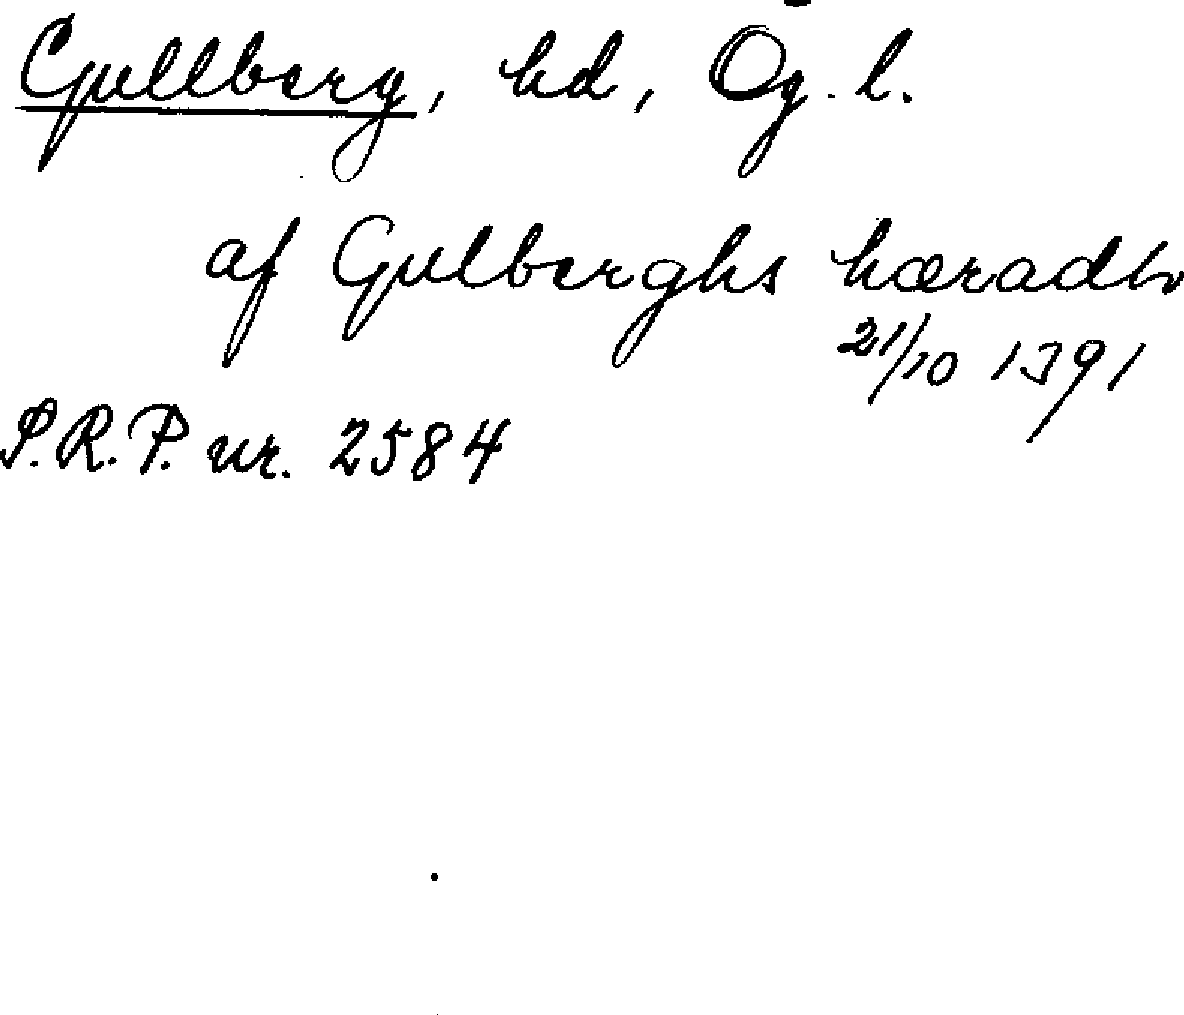 Gullberg, hd, Ög. l.
af Gulberghs hæradh
21/10 1391
S.R.P. nr. 2584